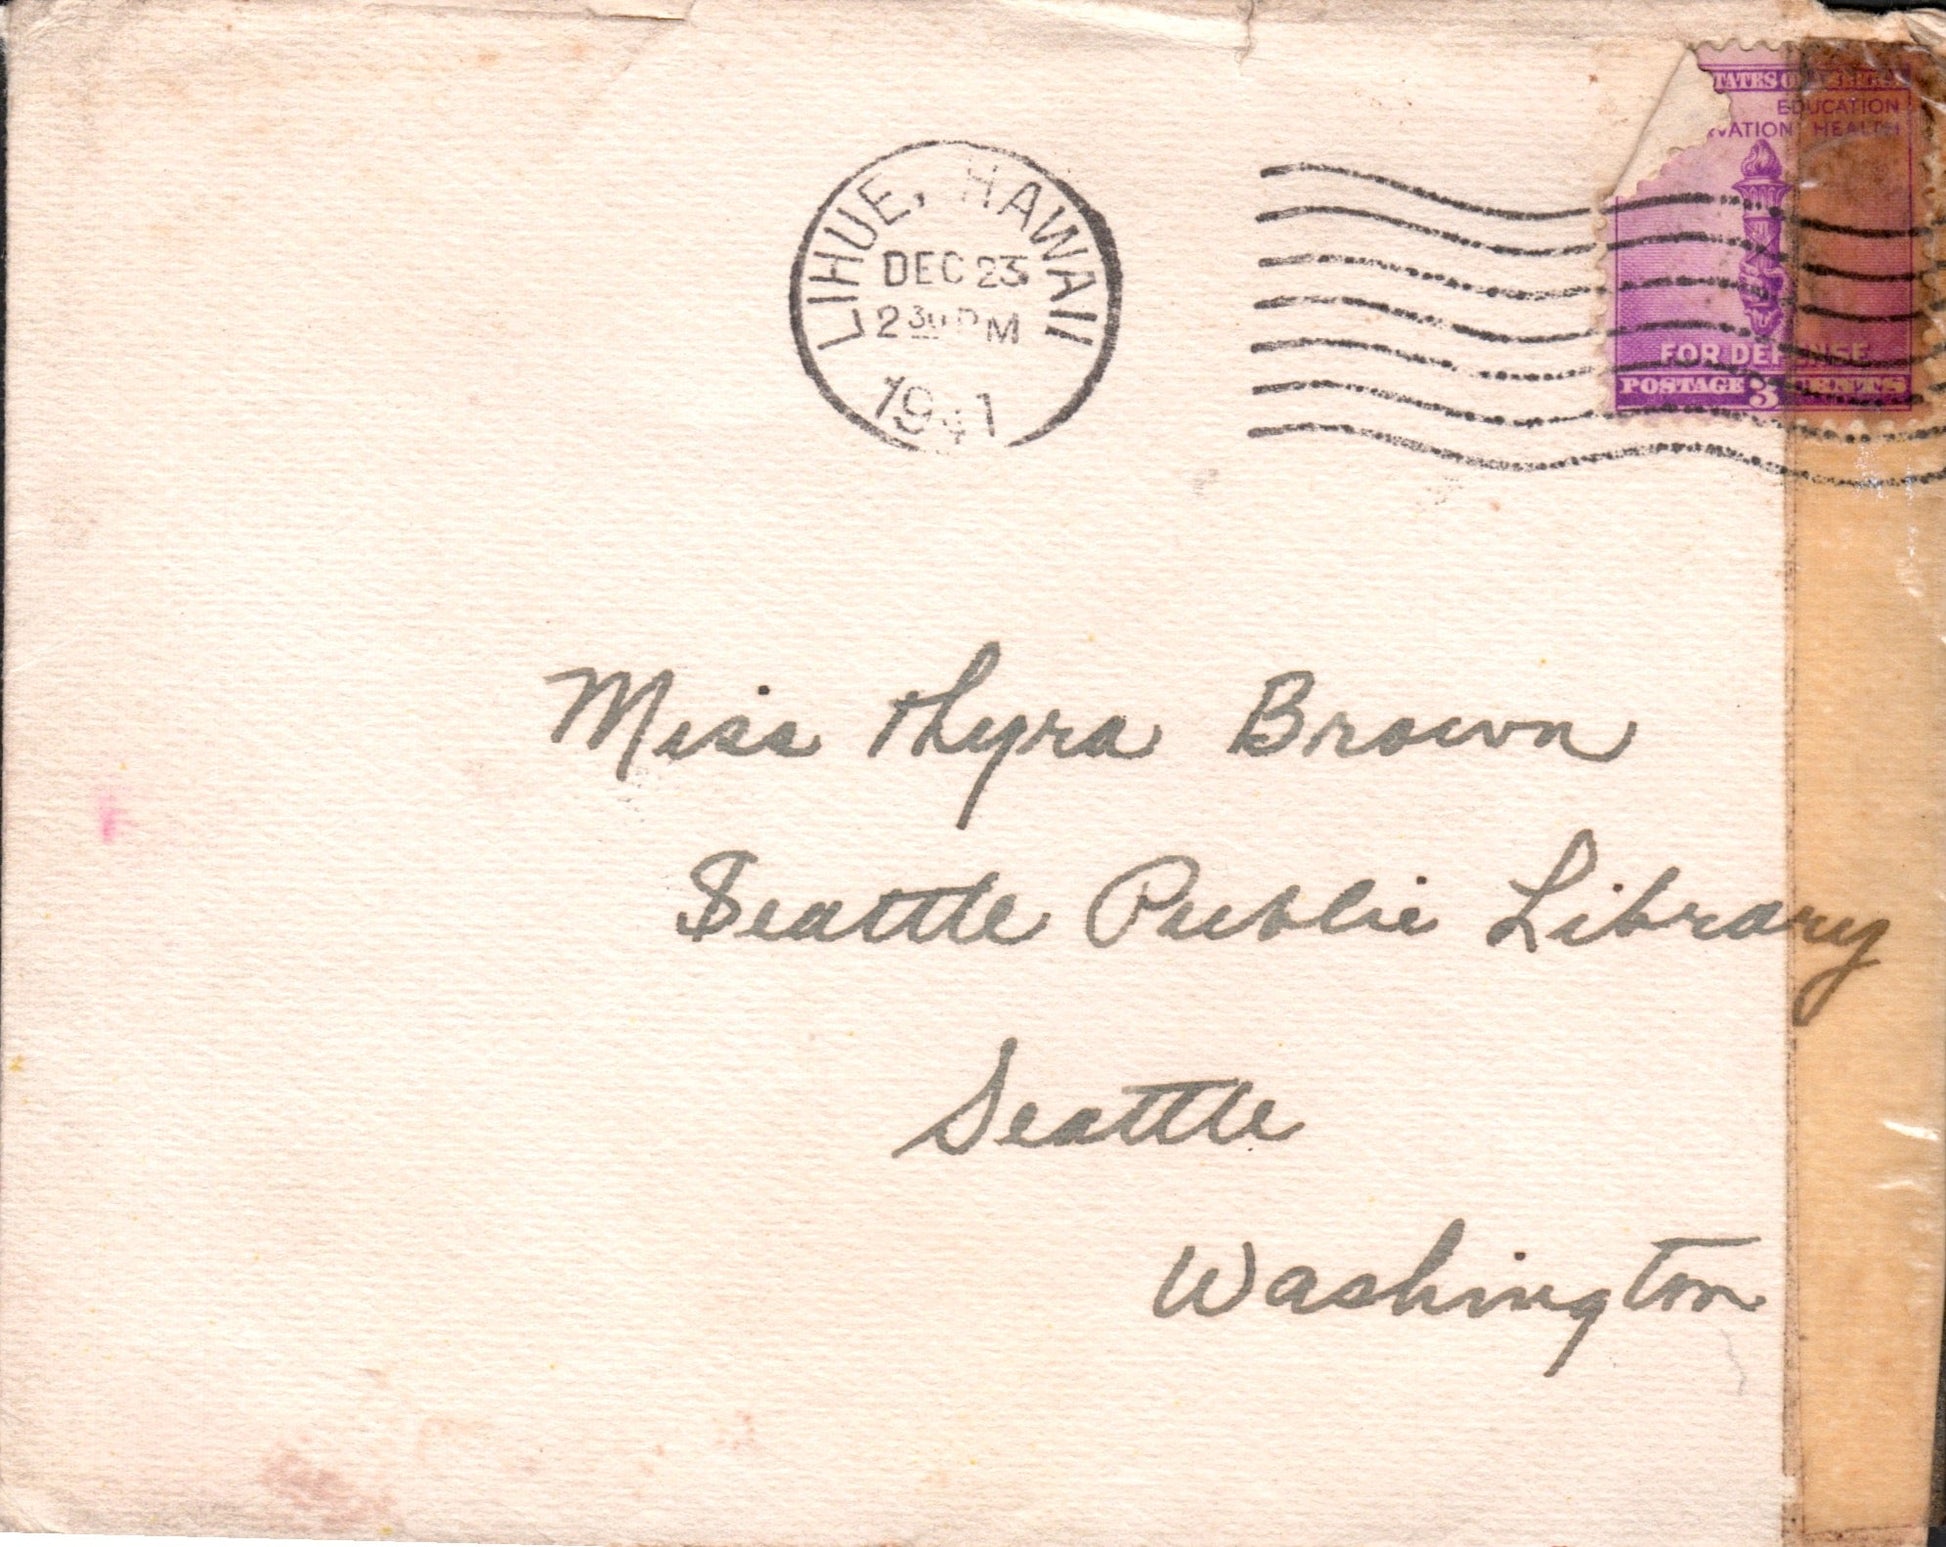 LIHUE, HAWAII
DEC 23
2 30 PM
1941
TATES OF AMERICA
EDUCATION
VATION HEALTH
FOR DEFENSE
POSTAGE 3 CENTS
Miss Thyra Brown
Seattle Public Library
Seattle
Washington